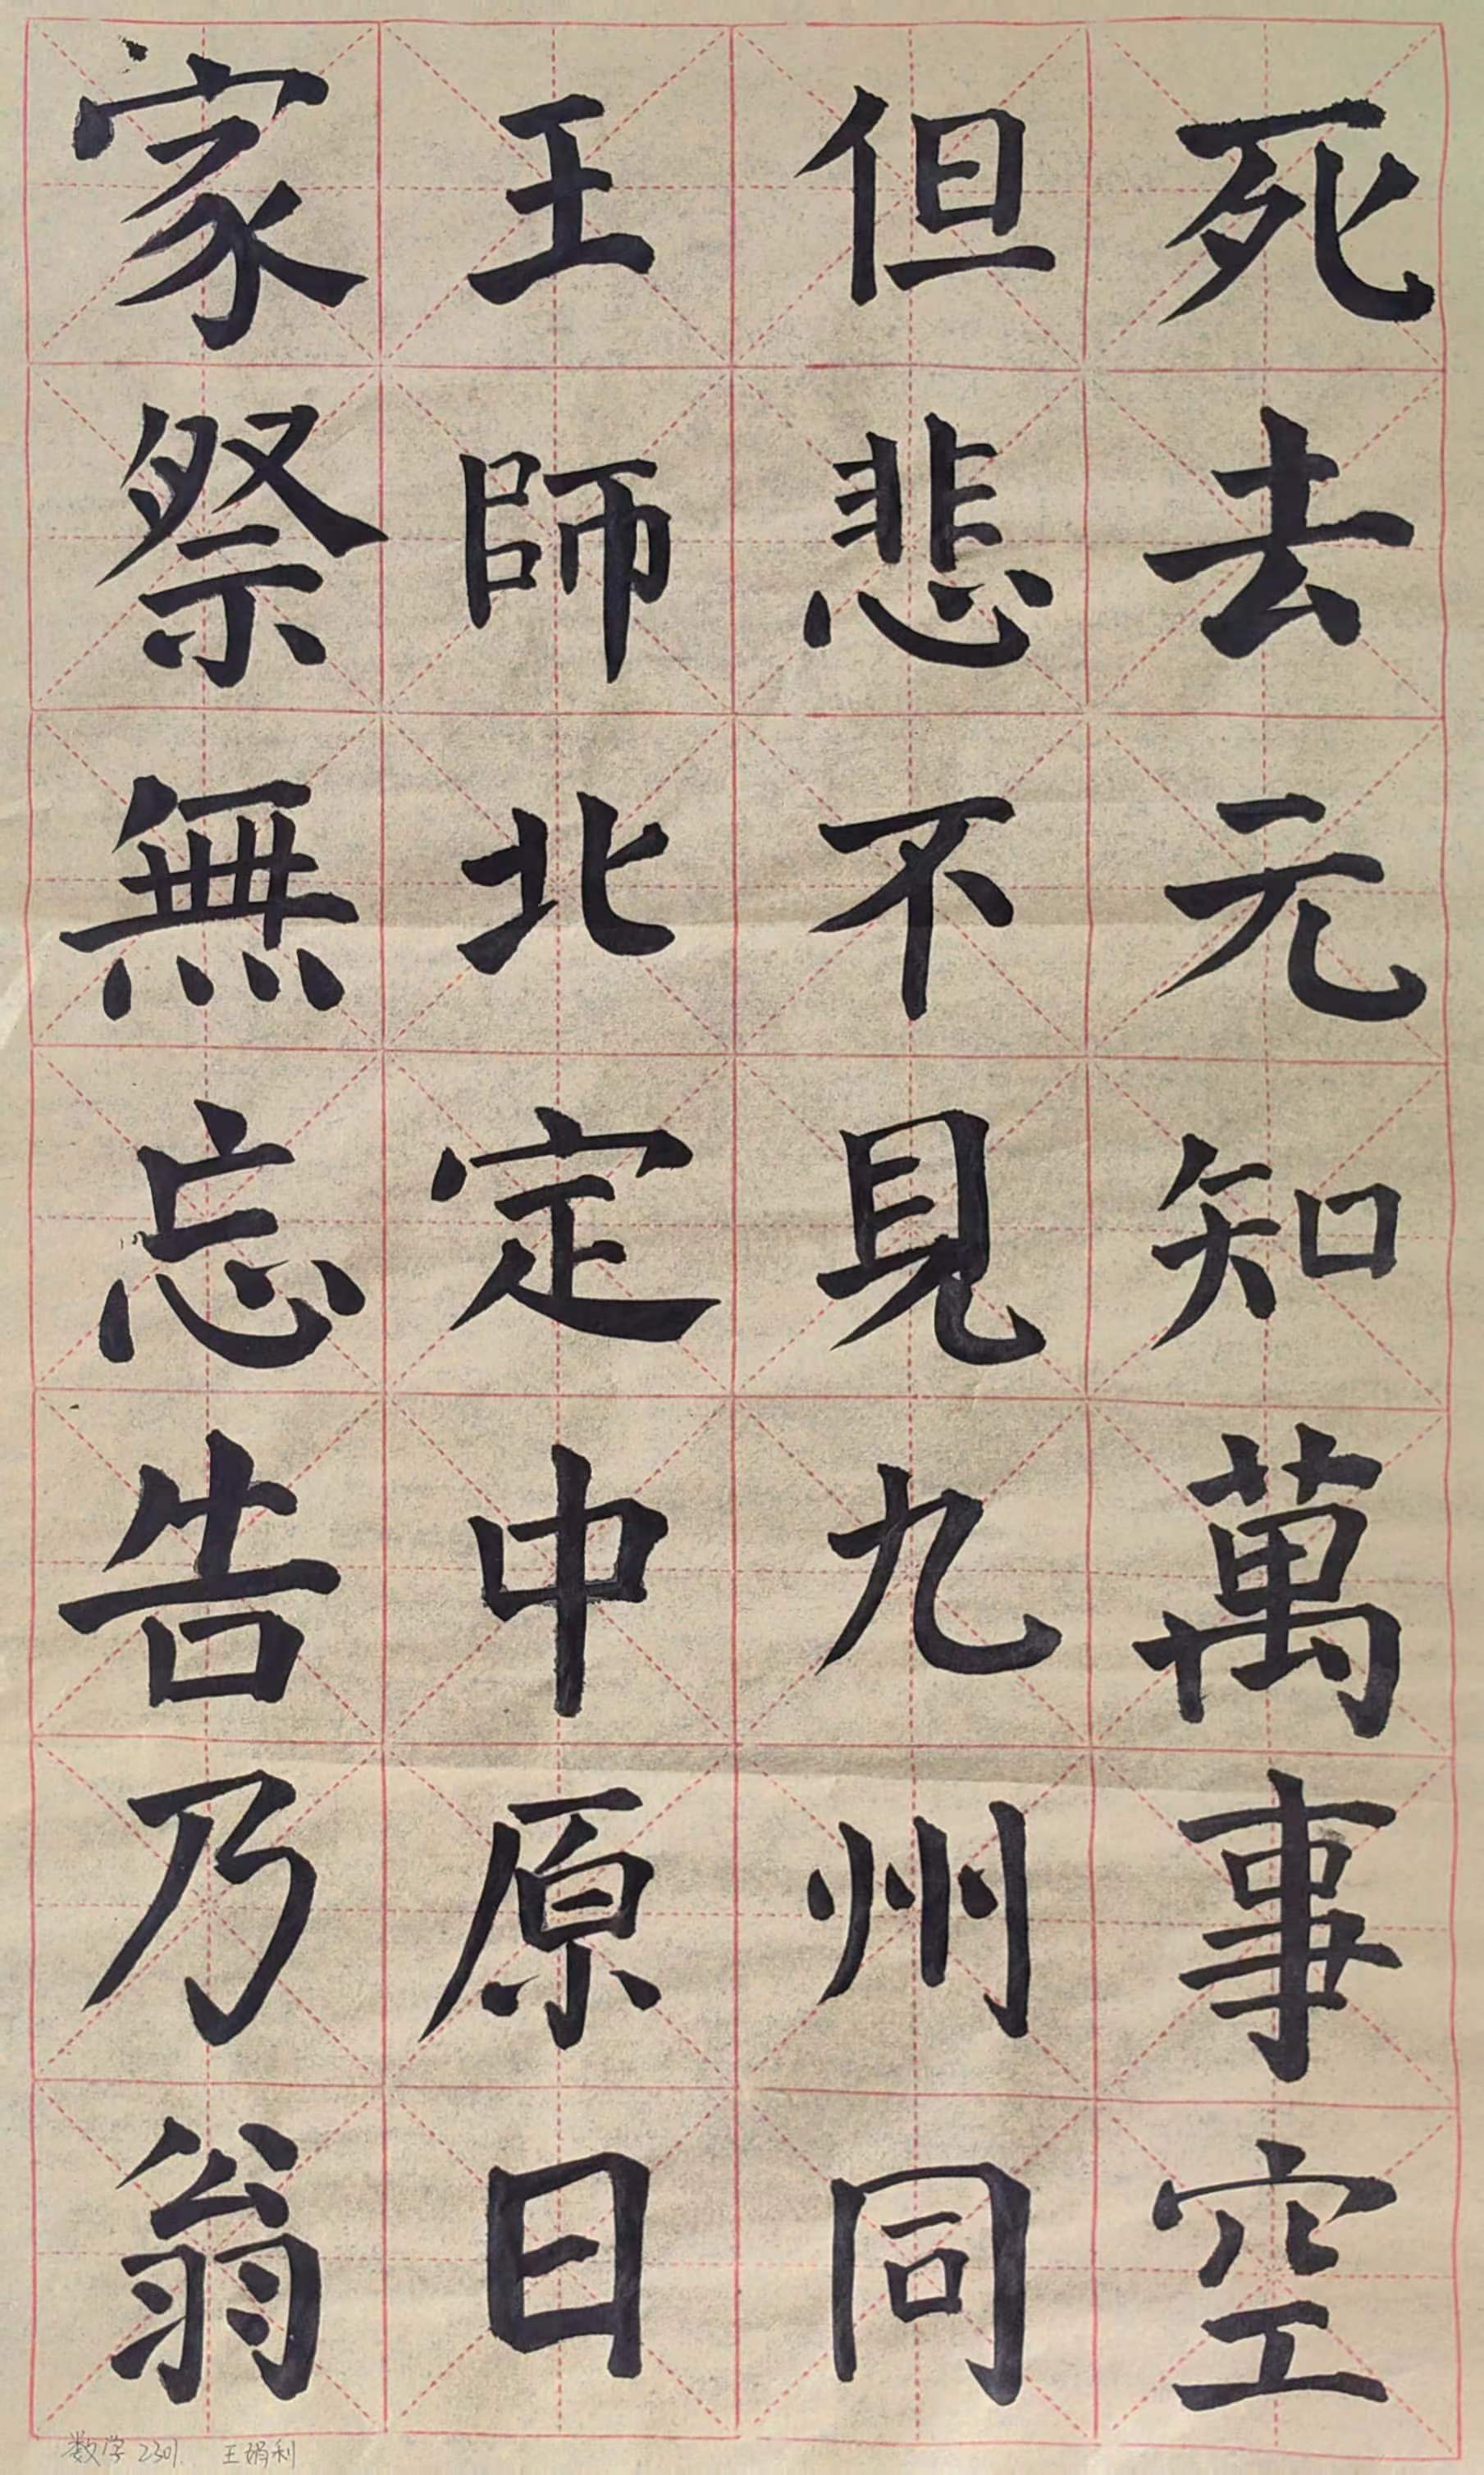 死去元知萬事空
但悲不見九州同
王師北定中原日
家祭無忘告乃翁
数学2301. 王娟利